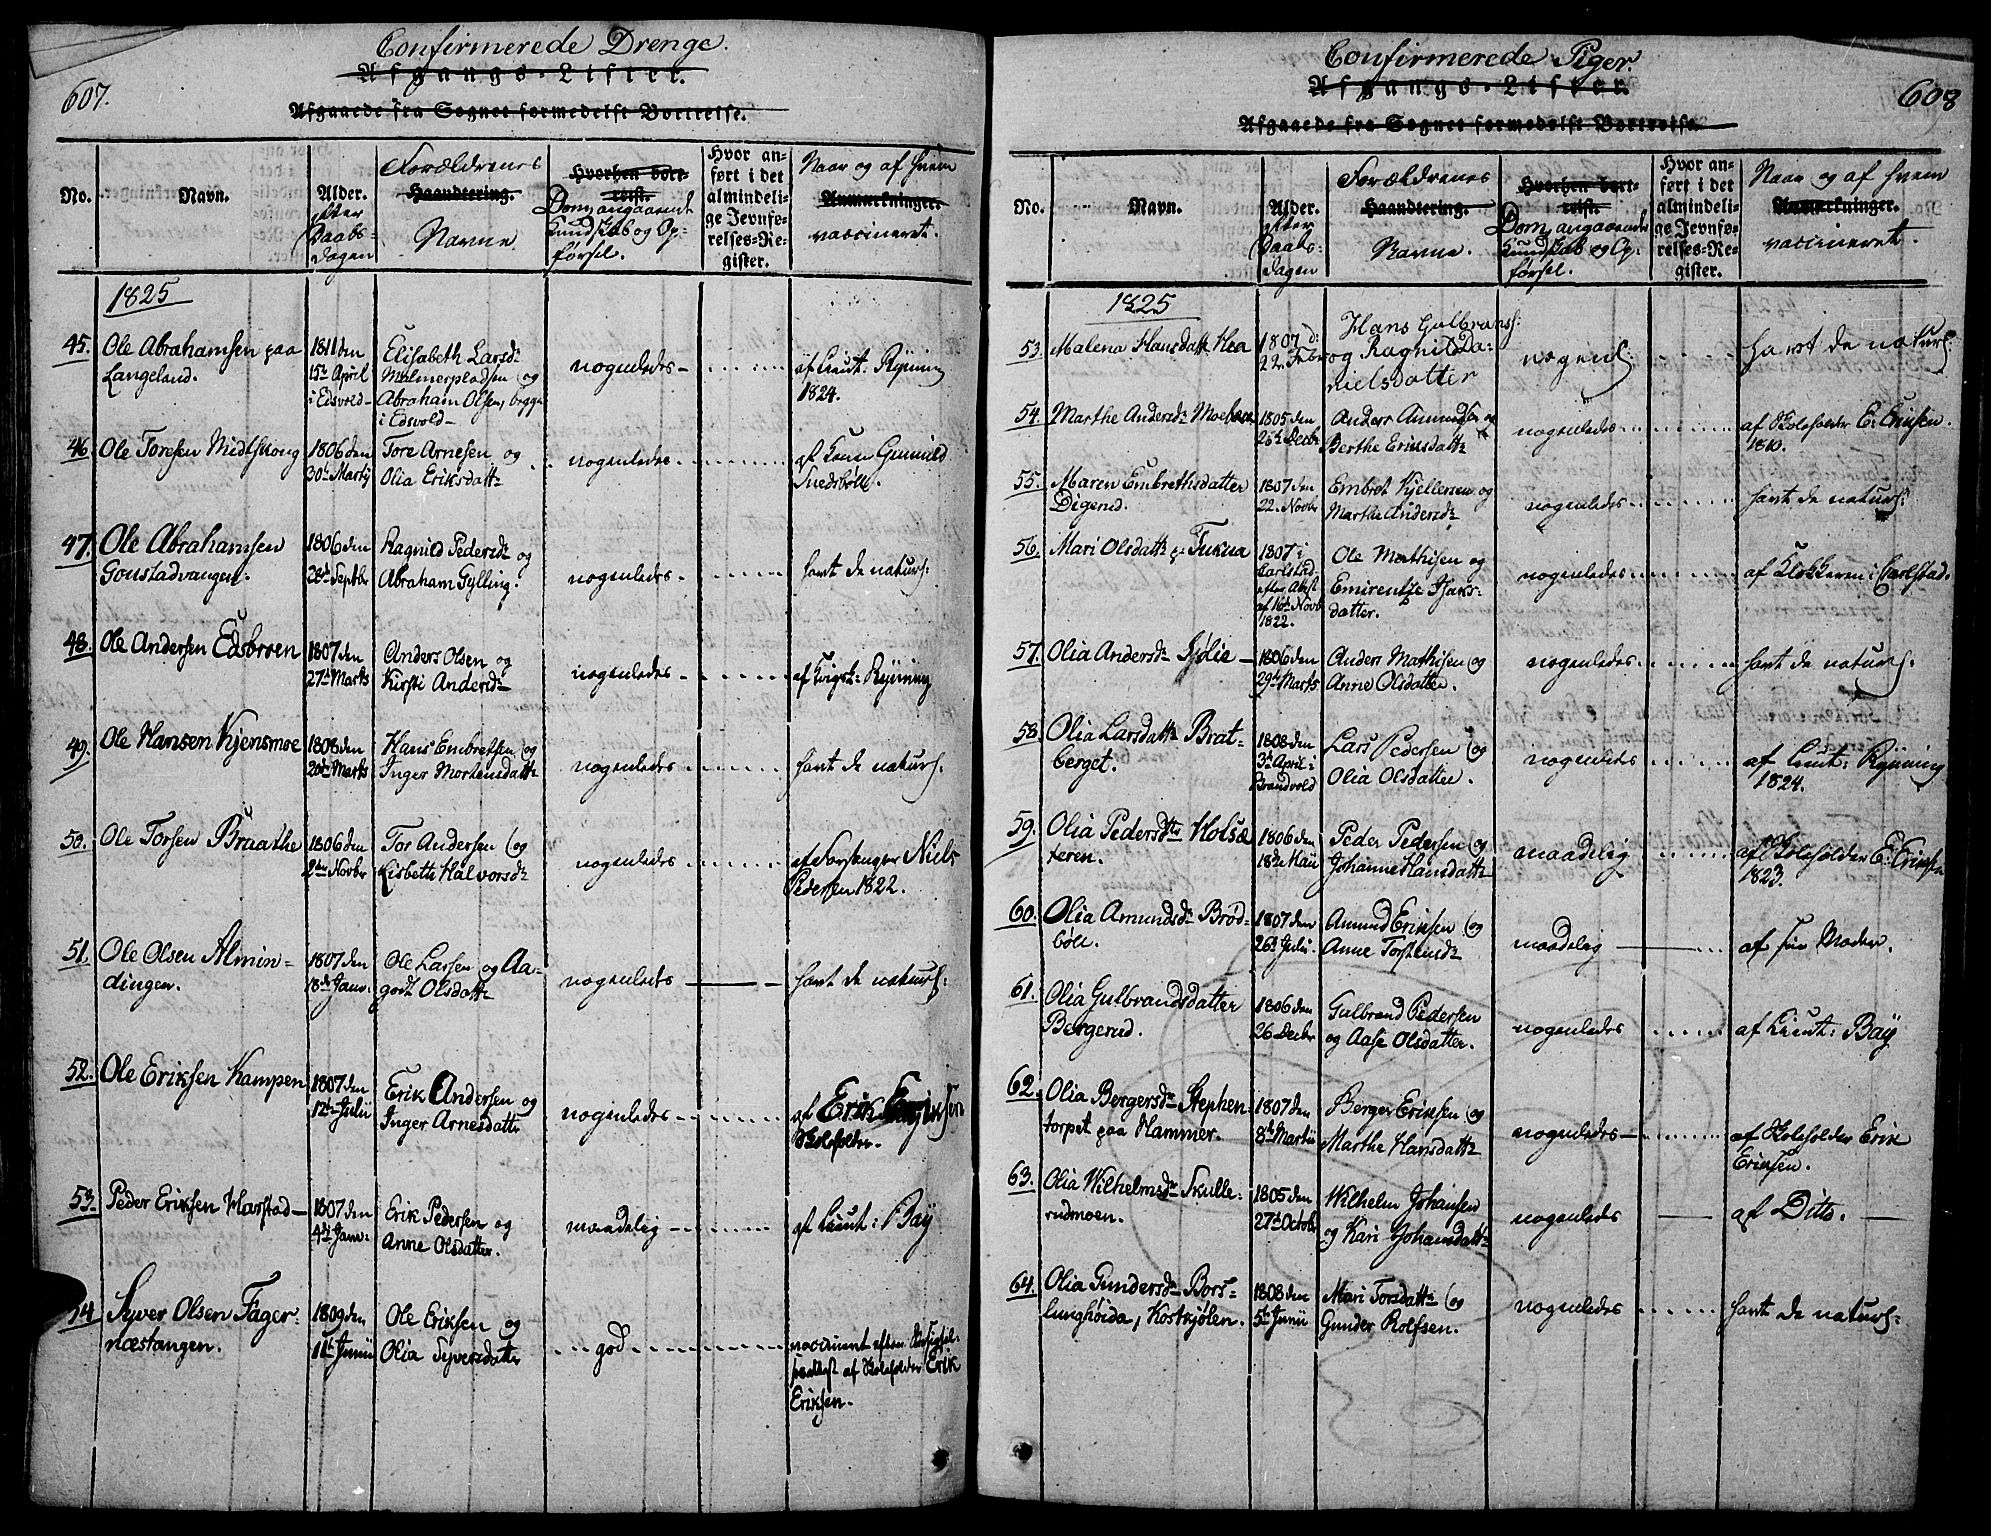 607.
Confirmerede Drenge.
Afgangs-Lister.
Afgaaede fra Sognet formedelst Bortreise.
No.
Navn.
Alder.
efter
Daabs-
dagen
Forældrenes
Haandtering.
Navne
Hvorhen bort-
reist.
Dom, angaaende
Kundskab og Op-
førsel.
Hvor an-
ført i det
almindeli-
ge Jevnfø-
relses-Re-
gister.
Naar og af hvem
Anmærkninger.
vaccineret.
1825
45. Ole Abrahamsen paa
Langeland.
1811 den
15de April
i Edsvold-
Elisabeth Larsd:
Malmerpladsen og
Abraham Olsen, begge
i Edsvold-
nogenledes
af Lieut: Ryning
1824.
46. Ole Torsen Midtskong
1806 den
30te Martij
Tore Arnesen og
Olia Eriksdatt:
nogenledes
af Gunnild
47. Ole Abrahamsen
Gonstadvangen.
1806 den
28de Septbr
Ragnild Pedersd: og
Abraham Gylling.
nogenledes
havt de naturl:
48. Ole Andersen Edsbroen
1807 den
27de Marts
Anders Olsen og
Kirsti Andersd:
nogenledes
af Ryning
49. Ole Hansen Kjensmoe
1808 den
20de Marts
Hans Embretsen og
Inger Mortensdatt:
nogenledes
havt de naturl:
50. Ole Torsen Braathe
1806 den
2den Novbr
Tor Andersen og
Lisbeth Halvorsd:
nogenledes
af Niels
Pedersen 1822.
51. Ole Olsen Almin-
dingen.
1807 den
18de Janv:
Ole Larsen og Aa-
godt Olsdatt:
nogenledes
havt de naturl:
52. Ole Eriksen Kampen
1807 den
12te Julii
Erik Andersen og
Inger Arnesdatt:
nogenledes
af Erik Eriksen
Skoleholder.
53. Peder Eriksen Harstad
1807 den
4de Janv:
Erik Pedersen og
Anne Olsdatter.
maadelig
af Lieut: Baÿ
54. Syver Olsen Fager-
næstangen.
1809 den
11te Junii
Ole Eriksen og
Olia Syversdatter
god
vaccineret efter
af Skoleholder Erik
Eriksen.
608
Confirmerede Piger.
Afgangs-Lister.
Afgaaede fra Sognet formedelst Bortreise.
No.
Navn.
Alder.
efter
Daabs-
dagen
Forældrenes
Haandtering.
Navne.
Hvorhen bort-
reist.
Dom, angaaende
Kundskab og Op-
førsel.
Hvor an-
ført i det
almindeli-
ge Jevnfø-
relses-Re-
gister.
Naar og af hvem
Anmærkninger.
vaccineret.
1825
53. Malena Hansdatt: Hea
1807 d:
22. Febr
Hans Gulbrands:
og Ragnild Da-
nielsdatter
nogenl:
havt de naturl:
54. Marthe Andersd:
1805 den
26de Decbr
Anders Amundsen og
Berthe Eriksdatt:
nogenledes
af Skoleholder E: Eriksen.
1810.
55. Maren Embrethsdatter
Digerud.
1807 den
22. Novbr
Embret Kjellersen og
Marthe Andersd:
nogenledes
havt de naturl:
56. Mari Olsdatt: p: Tukua
1807 i
Carlstad
efter Attest
af 16de Novb
1822.
Ole Mathisen og
Emirentze Isaks-
datter.
nogenledes
af Klokkeren i Carlstad.
57. Olia Andersd: Sjølie
1806 den
29de Marts
Anders Mathisen og
Anne Olsdatter.
nogenledes
havt de naturl:
58. Olia Larsdatt: Brat-
berget.
1808 den
3de April i
Brandvold
Lars Pedersen og
Olia Olsdatter.
nogenledes
af Lieut: Ryning
1824.
59. Olia Pedersdtr Holsæ
teren.
1806 den
18de Maii
Peder Pedersen og
Johanne Hansdatt:
maadelig
af Skoleholder E: Eriksen
1823.
60. Olia Amundsd: Brød-
böll.
1807 den
26de Julii
Amund Eriksen og
Anne Torstensd:
maadelig
af sin Moder.
61. Olia Gulbrandsdatter
Bergerud.
1806 den
26 Decbr
Gulbrand Pedersen
og Aase Olsdatter.
nogenledes
af Lieut: Baÿ
62. Olia Bergersd: Stephen-
torpet paa Hammer.
1807 den
8de Martii
Berger Eriksen og
Marthe Hansdatt:
nogenledes
af Skoleholder Erik
Eriksen.
63. Olia Wilhelmsd: Skulle-
rudmoen.
1805 den
27de Octobr
Wilhelm Johansen
og Kari Johansdatt:
nogenledes
af Ditto.
64. Olia Gundersd: Bors-
lunghöida, Kostkjölen.
1808 den
5te Junii
Mari Torsdatt: og
Gunder Rolfsen.
nogenledes
havt de naturl: